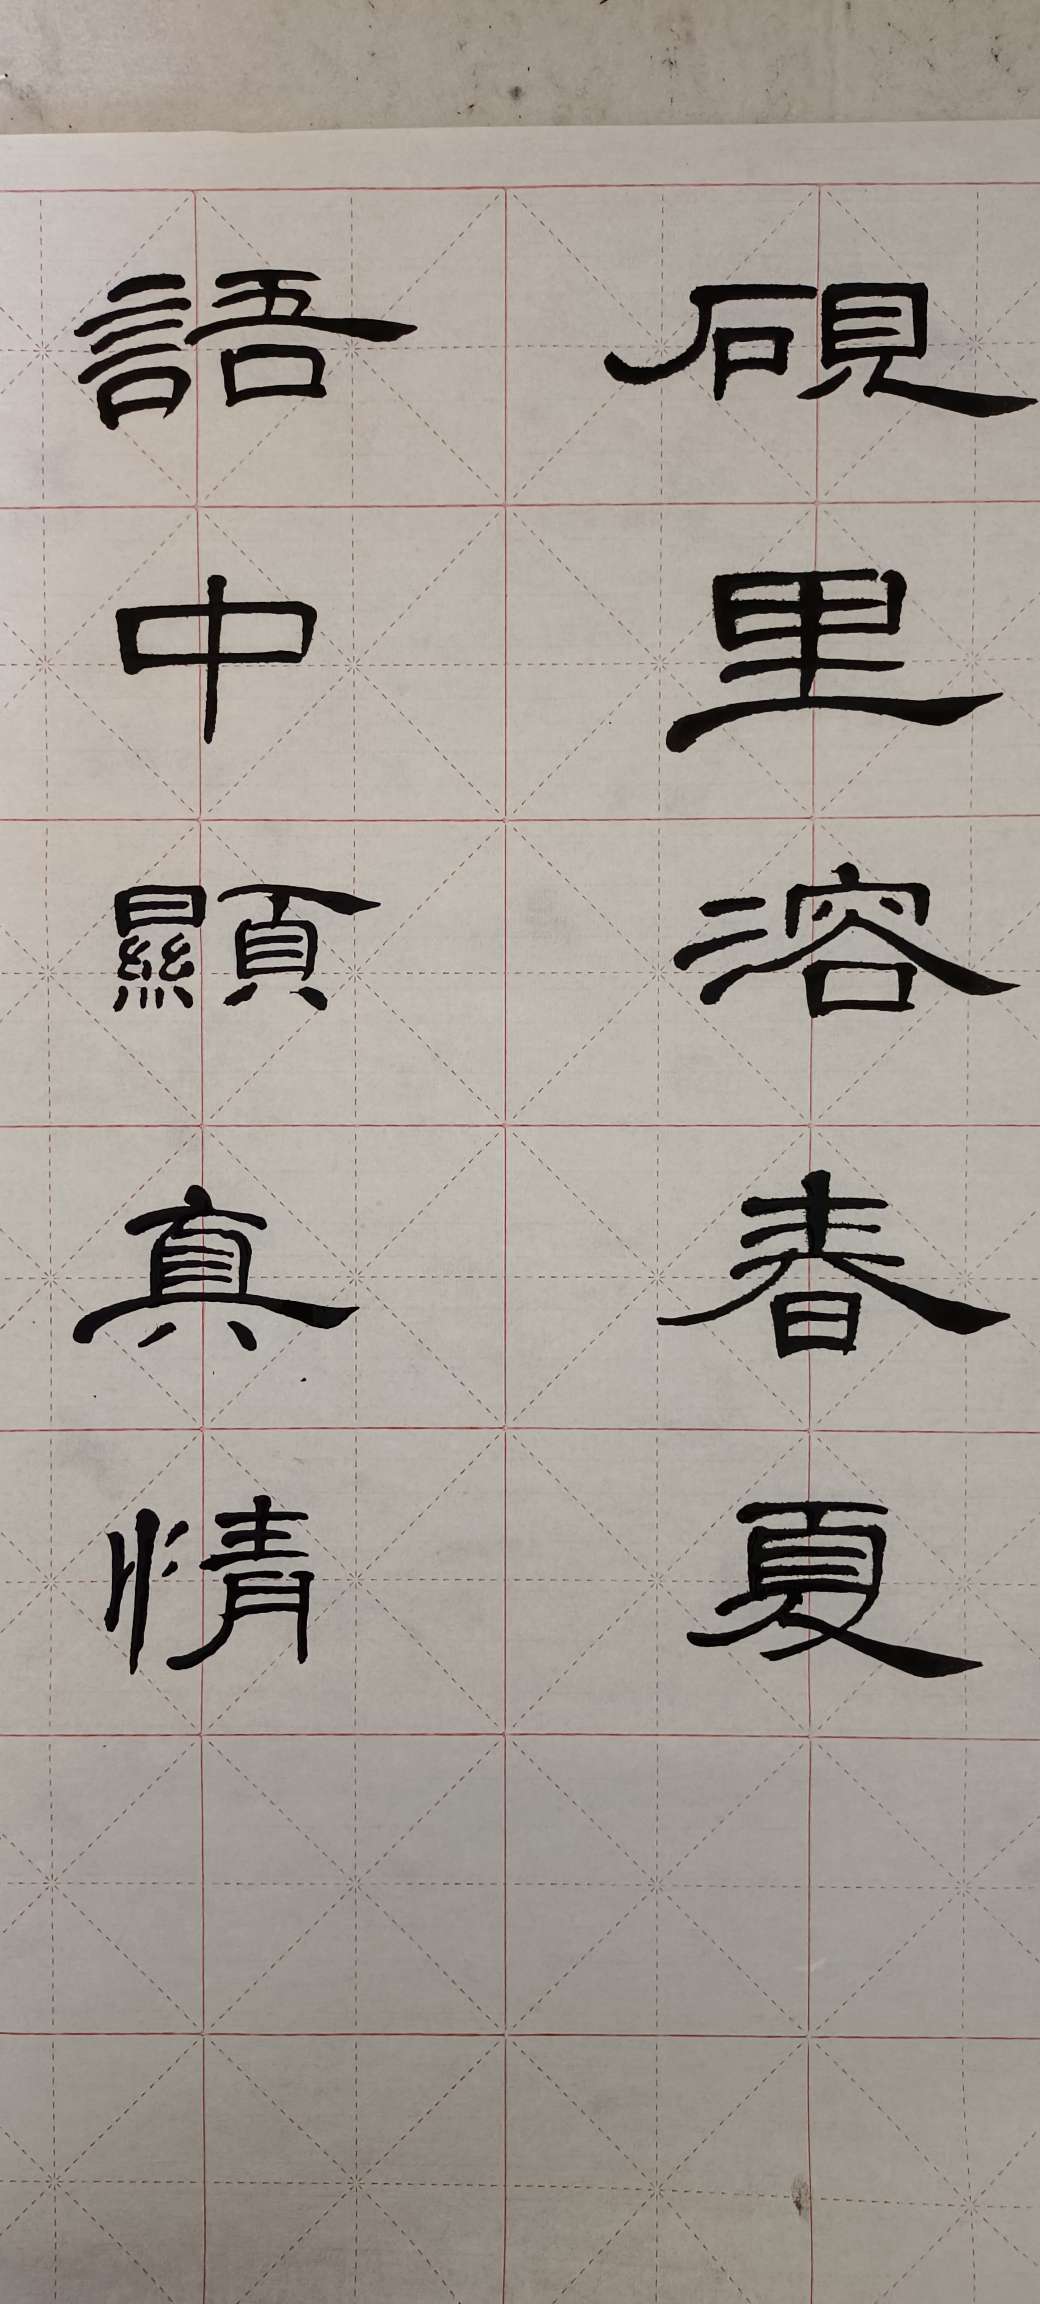 硯里溶春夏
語中顯真情